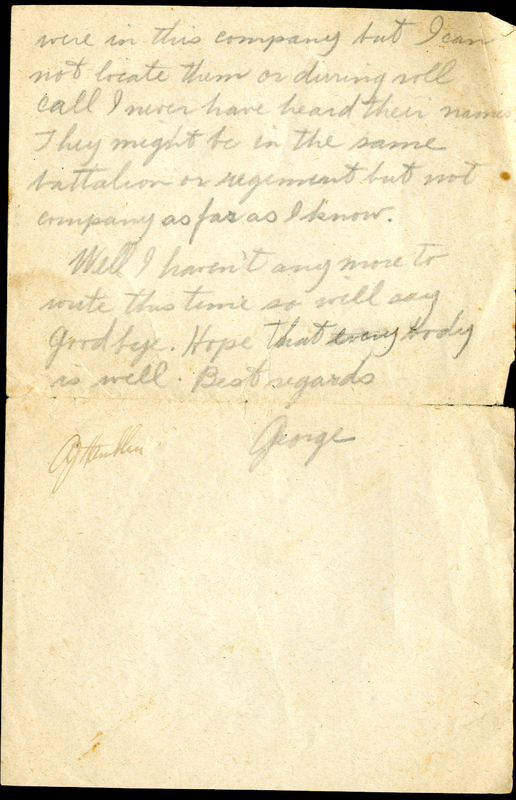 were in this company but I can
not locate them or during roll
call I never have heard their names
They might be in the same
battalion or regement but not
company as far as I know.
Well I haven't any more to
write this time so will say
Goodbye. Hope that every body
is well. Best regards
George